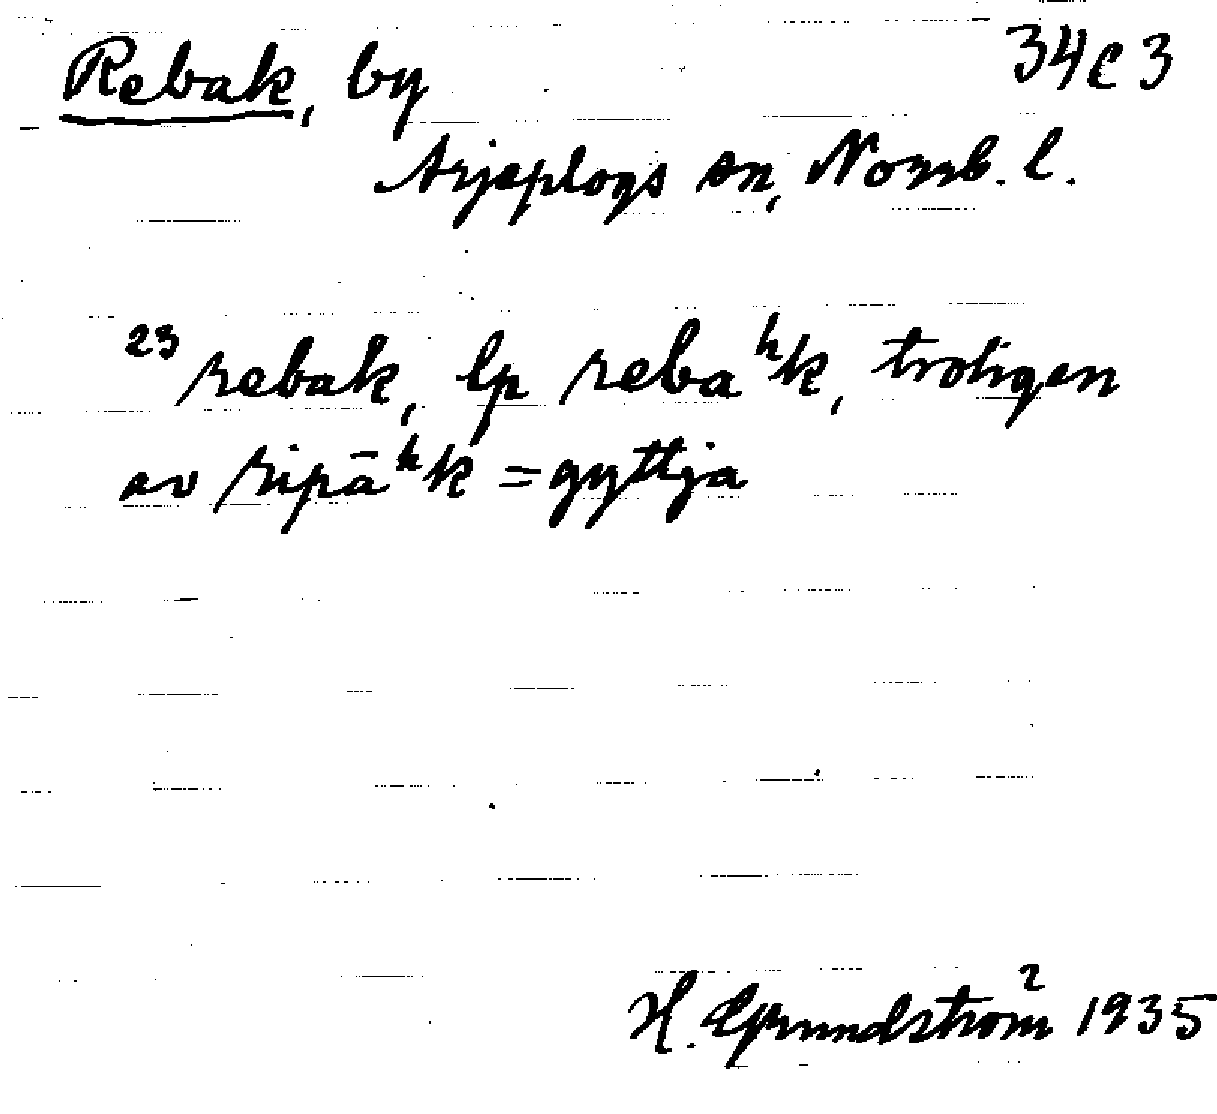 Rebak, by 34c3
Arjeplogs sn, Norrb. l.
²³rebak, lp rebaʰk, troligen
av ripāʰk = gyttja
H. Grundström 1935